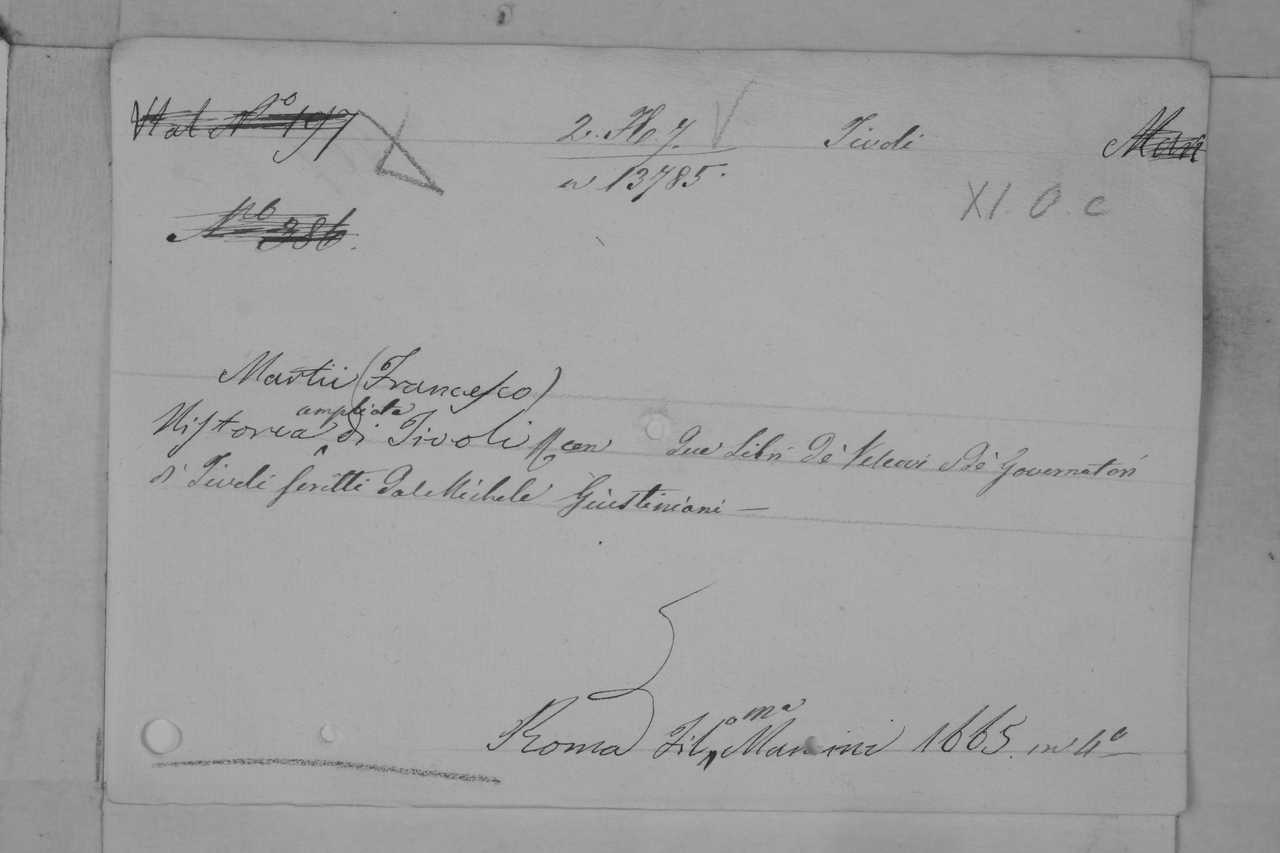 Ital N° 197 2. H. 7. Tivoli Man
a 13785.
XI. O. c
No 386.
Martii (Francesco)
Historia ampliata di Tivoli con due Libri de Vescovi e de Governatori
di Tivoli scritti dal Michele Giustiniani —
Roma Filoma Mancini 1665. in 4°